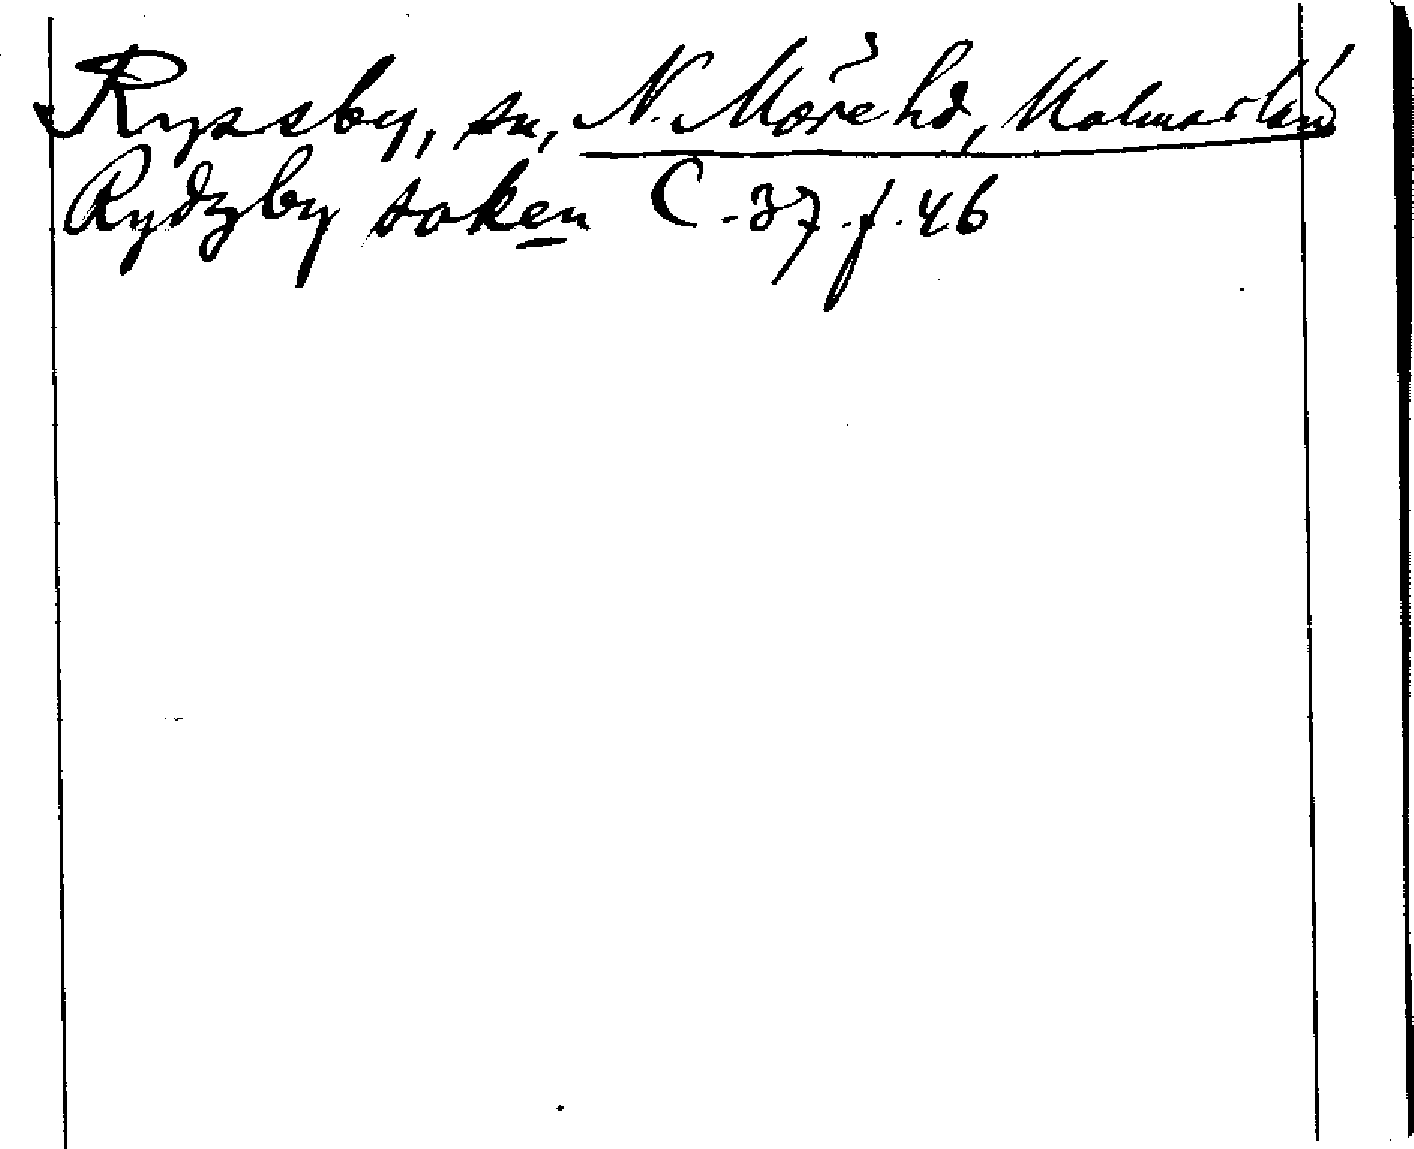 Ryssby, sn, N. Möre hd, Kalmar län
Rydzby soken C. 37. f. 46